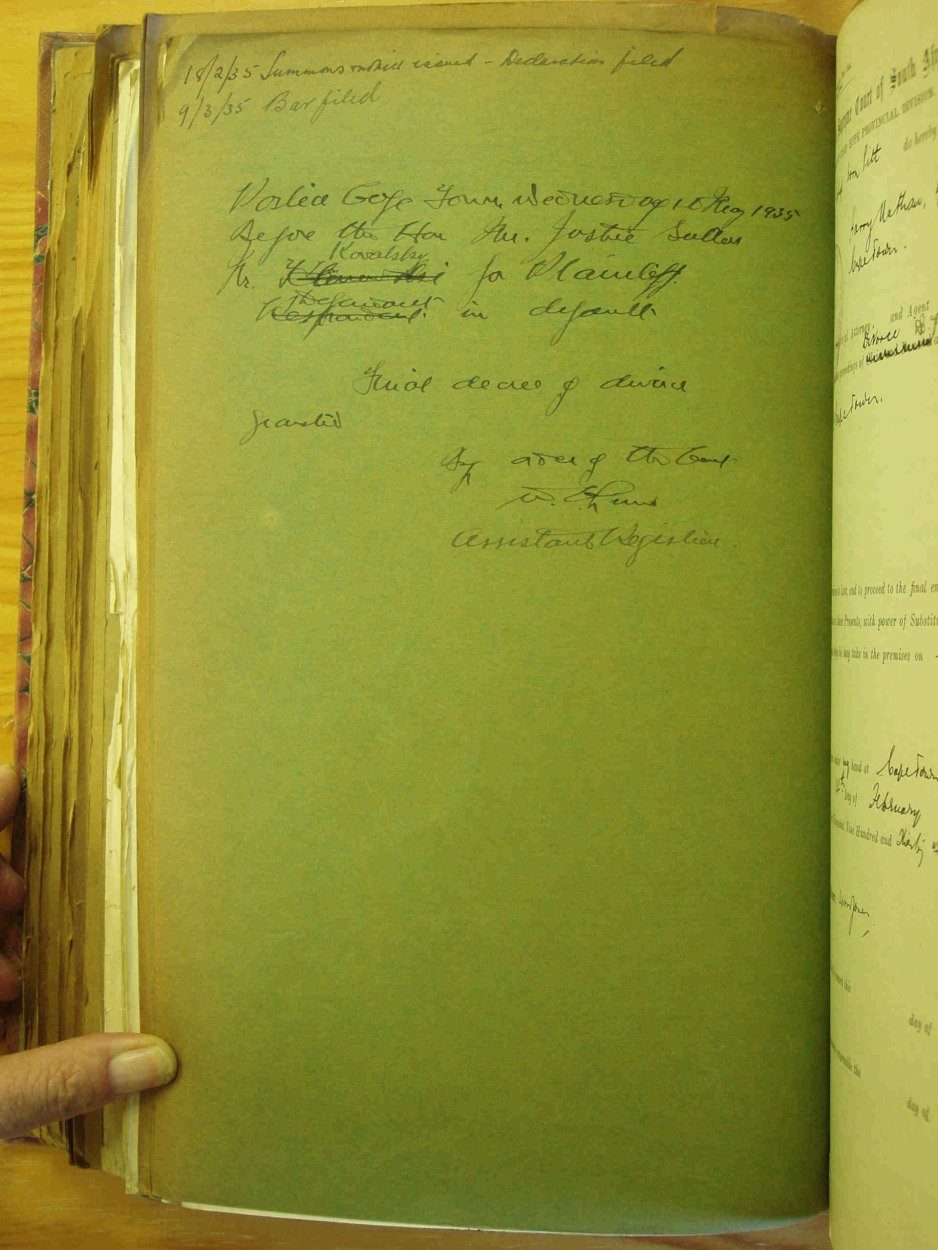 18/2/35 Summons issued - Declaration filed
9/3/35 Bar filed
Cape Town, Wednesday 1 May 1935
Before the Hon Mr. Justice
Kowalsky
Mr. for Plaintiff.
Defendant
Respondent in default
Final decree of divorce
granted
By order of the Court
Assistant Registrar.
Supreme Court of South
HOPE PROVINCIAL DIVISION
do hereby
Cape Town.
and Agent
Divorce
Cape Town.
law, and to proceed to the final
Presents, with power of
may take in the premises on
hand at Cape Town
Day of February
Nine Hundred and Thirty
day of
day of